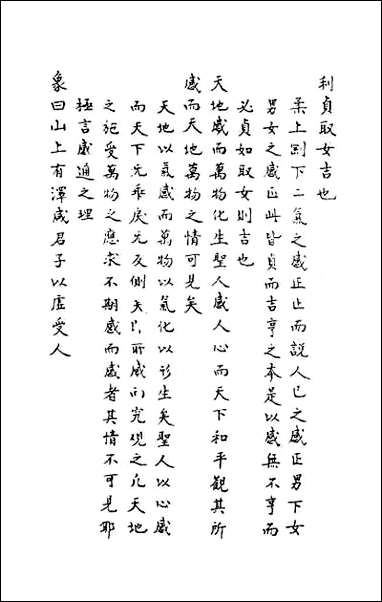 利貞取女吉也
柔上剛下二氣之感正止而說人己之感正男下女
男女之感正此皆貞而吉亨之本是以感無不亨而
必貞如取女則吉也
天地感而萬物化生聖人感人心而天下和平觀其所
感而天地萬物之情可見矣
天地以氣感而萬物以氣化以形生矣聖人以心感
而天下无乖戾无反側矣即所感而究觀之凡天地
之施受萬物之應求不期感而感者其情不可見耶
極言感通之理
象曰山上有澤咸君子以虛受人